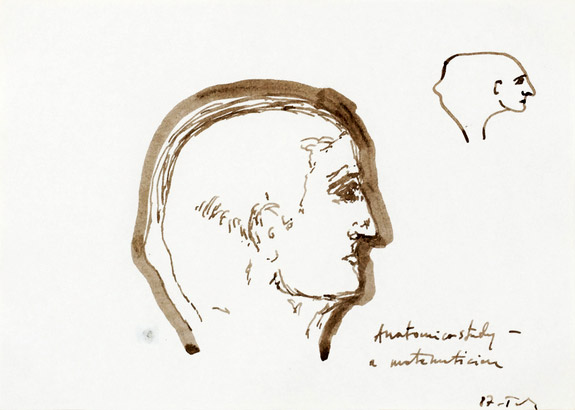 Anatomico study —
a matematician